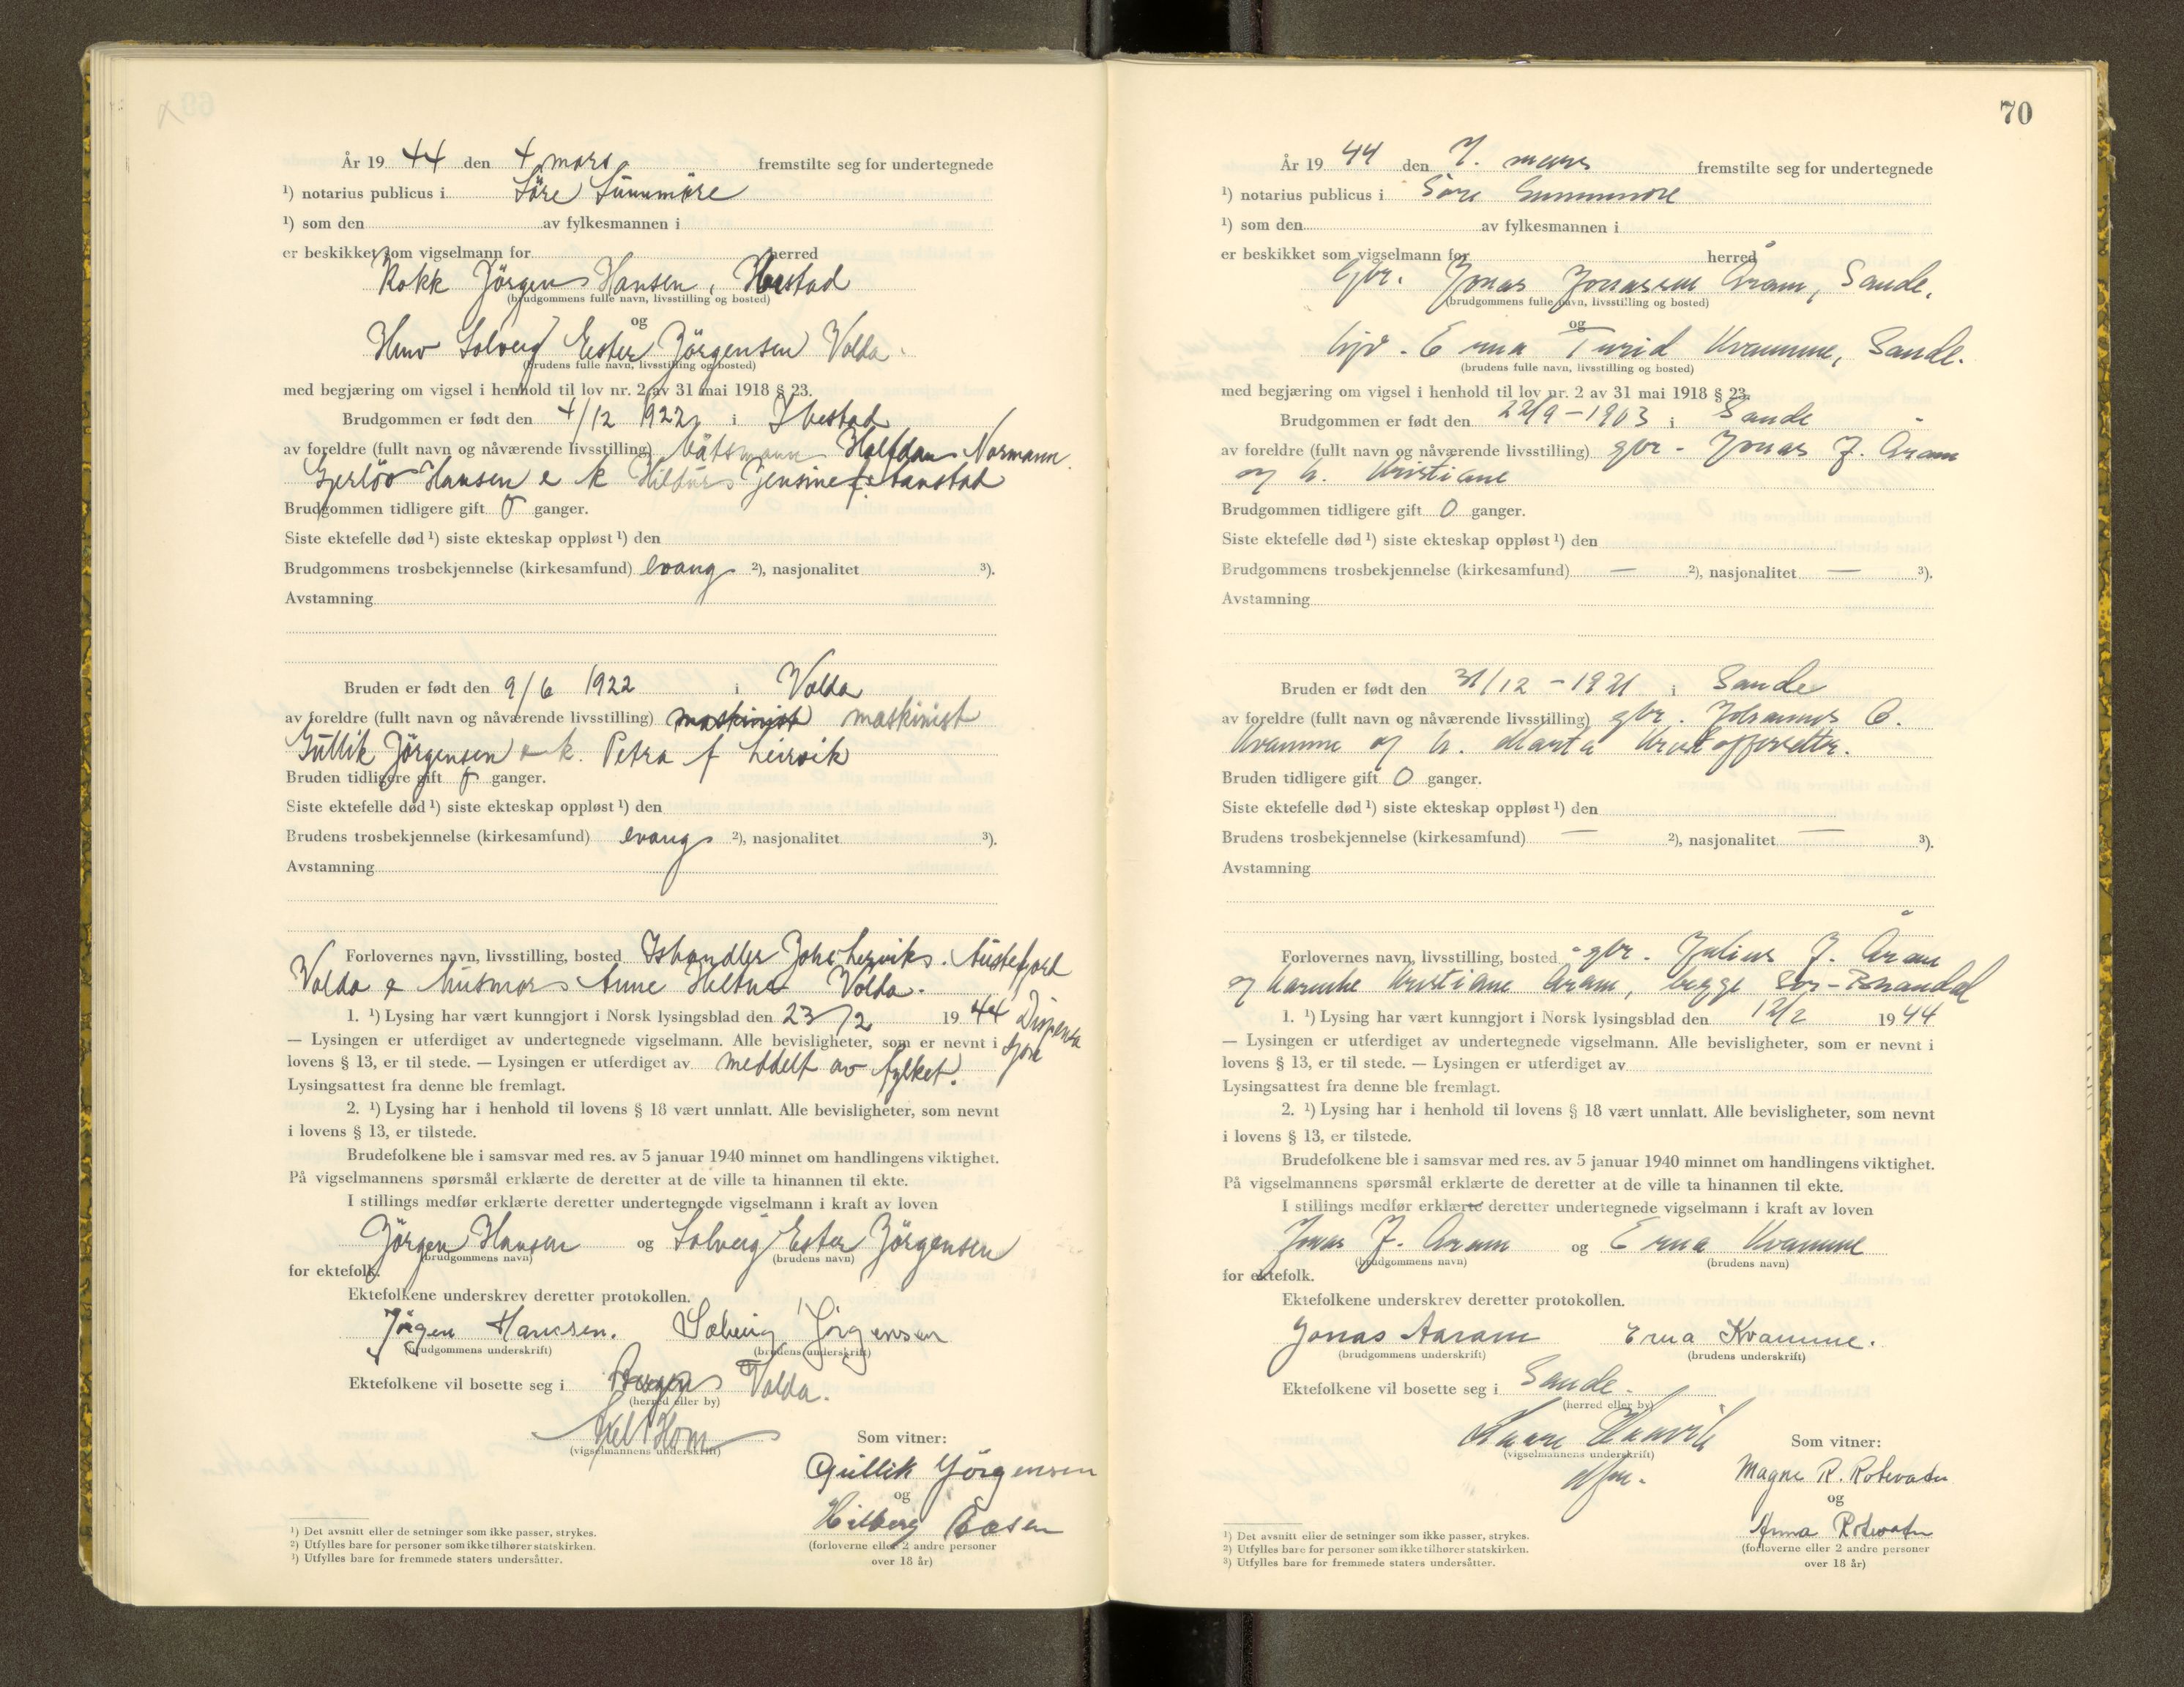 År 19 44 den 4 mars fremstilte seg for undertegnede
¹) notarius publicus i Söre Sünnmöre
¹) som den av fylkesmannen i
er beskikket som vigselmann for herred
Kokk Jörgen Hansen,
(brudgommens fulle navn, livsstilling og bosted)
og
Solveig Ester Jörgensen Volda.
(brudens fulle navn, livsstilling og bosted)
med begjæring om vigsel i henhold til lov nr. 2 av 31 mai 1918 § 23.
Brudgommen er født den 4/12 1922 i Ibestad
av foreldre (fullt navn og nåværende livsstilling) båtsmann Halfdan Normann
Hansen e k Jensine f.
Brudgommen tidligere gift 0 ganger.
Siste ektefelle død ¹) siste ekteskap oppløst ¹) den
Brudgommens trosbekjennelse (kirkesamfund) evang ²), nasjonalitet ³).
Avstamning
Bruden er født den 9/6 1922 i Volda
av foreldre (fullt navn og nåværende livsstilling) maskinist maskinist
Güllik Jörgensen e k. Petra f Leirvik
Bruden tidligere gift 0 ganger.
Siste ektefelle død ¹) siste ekteskap oppløst ¹) den
Brudens trosbekjennelse (kirkesamfund) evang ²), nasjonalitet ³).
Avstamning
Forlovernes navn, livsstilling, bosted Joh. Austefjord
Volda e husmor Anne Volda.
1. ¹) Lysing har vært kunngjort i Norsk lysingsblad den 23/2 19 44
— Lysingen er utferdiget av undertegnede vigselmann. Alle bevisligheter, som er nevnt i
lovens § 13, er til stede. — Lysingen er utferdiget av meddelt av fylket.
Lysingsattest fra denne ble fremlagt.
2. ¹) Lysing har i henhold til lovens § 18 vært unnlatt. Alle bevisligheter, som nevnt
i lovens § 13, er tilstede.
Brudefolkene ble i samsvar med res. av 5 januar 1940 minnet om handlingens viktighet.
På vigselmannens spørsmål erklærte de deretter at de ville ta hinannen til ekte.
I stillings medfør erklærte deretter undertegnede vigselmann i kraft av loven
Jörgen Hansen og Solveig Ester Jörgensen
(brudgommens navn) (brudens navn)
for ektefolk.
Ektefolkene underskrev deretter protokollen.
Jörgen Hansen. Solveig Jörgensen
(brudgommens underskrift) (brudens underskrift)
Ektefolkene vil bosette seg i Volda.
(herred eller by)
(vigselmannens underskrift)
Som vitner:
Gullik Jörgensen
og
Aasen
(forloverne eller 2 andre personer
over 18 år)
¹) Det avsnitt eller de setninger som ikke passer, strykes.
²) Utfylles bare for personer som ikke tilhører statskirken.
³) Utfylles bare for fremmede staters undersåtter.
70
År 19 44 den 7. mars fremstilte seg for undertegnede
¹) notarius publicus i Søre Sunnmøre
¹) som den av fylkesmannen i
er beskikket som vigselmann for herred
Gbr. Jonas Jonassen Åram, Sande.
(brudgommens fulle navn, livsstilling og bosted)
og
Erna Turid Kvamme, Sande.
(brudens fulle navn, livsstilling og bosted)
med begjæring om vigsel i henhold til lov nr. 2 av 31 mai 1918 § 23.
Brudgommen er født den 22/9 - 1903 i Sande
av foreldre (fullt navn og nåværende livsstilling) gbr. Jonas J. Åram
og h. Kristiane
Brudgommen tidligere gift 0 ganger.
Siste ektefelle død ¹) siste ekteskap oppløst ¹) den
Brudgommens trosbekjennelse (kirkesamfund) — ²), nasjonalitet — ³).
Avstamning
Bruden er født den 31/12 - 1921 i Sande
av foreldre (fullt navn og nåværende livsstilling) gbr. Johannes O.
Kvamme og h. Marta Kristoffersdtr.
Bruden tidligere gift 0 ganger.
Siste ektefelle død ¹) siste ekteskap oppløst ¹) den
Brudens trosbekjennelse (kirkesamfund) — ²), nasjonalitet — ³).
Avstamning
Forlovernes navn, livsstilling, bosted gbr. Julius J. Åram
og Kristiane Åram, begge Sør-Brandal
1. ¹) Lysing har vært kunngjort i Norsk lysingsblad den 12/2 19 44
— Lysingen er utferdiget av undertegnede vigselmann. Alle bevisligheter, som er nevnt i
lovens § 13, er til stede. — Lysingen er utferdiget av
Lysingsattest fra denne ble fremlagt.
2. ¹) Lysing har i henhold til lovens § 18 vært unnlatt. Alle bevisligheter, som nevnt
i lovens § 13, er tilstede.
Brudefolkene ble i samsvar med res. av 5 januar 1940 minnet om handlingens viktighet.
På vigselmannens spørsmål erklærte de deretter at de ville ta hinannen til ekte.
I stillings medfør erklærte deretter undertegnede vigselmann i kraft av loven
Jonas J. Åram og Erna Kvamme
(brudgommens navn) (brudens navn)
for ektefolk.
Ektefolkene underskrev deretter protokollen.
Jonas Aaram Erna Kvamme.
(brudgommens underskrift) (brudens underskrift)
Ektefolkene vil bosette seg i Sande.
(herred eller by)
Kaare
(vigselmannens underskrift)
Som vitner:
Magne R. Rotevatn
og
Anna Rotevatn
(forloverne eller 2 andre personer
over 18 år)
¹) Det avsnitt eller de setninger som ikke passer, strykes.
²) Utfylles bare for personer som ikke tilhører statskirken.
³) Utfylles bare for fremmede staters undersåtter.